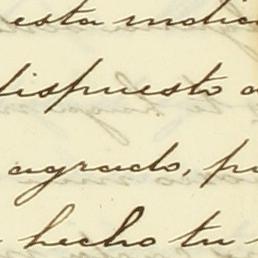 esta indic
dispuesto a
agrado, po
hecho tu